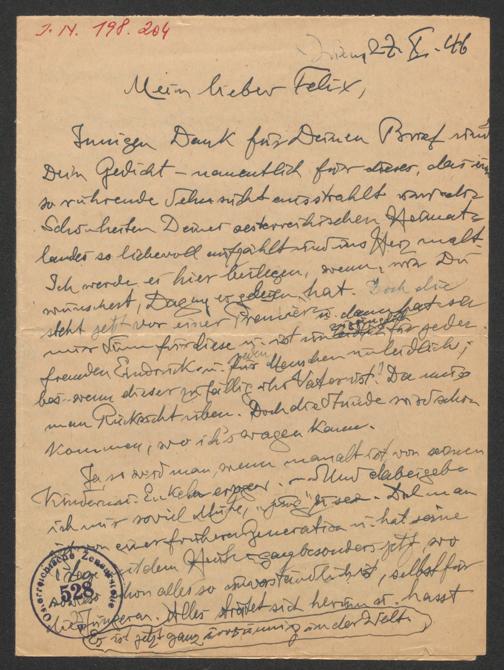 J.N. 198.204
27. X. 46
Mein lieber Felix,
Innigen Dank für Deinen Brief und
Dein Gedicht – namentlich für dieses, das eine
so rührende Sehnsucht ausstrahlt und die
Schönheiten Deines oesterreichischen Heimat-
landes so liebevoll aufzählt und ins Herz malt.
Ich werde es hier beilegen, wenn, wie Du
wünschest, Dagny es gelesen hat. Doch die
steht jetzt vor einer Premiere u. dann hat sie
nur Sinn für diese u. ist für jeden
fremden Eindruck u. jeden Menschen unleidlich;
bes. wenn dieser zufällig ihr Vater ist! Da muss
man Rücksicht üben. Doch die Stunde wird schon
kommen, wo ich's wagen kann.
Ja, so wird man, wenn man alt ist, von seinen
Kindern u. Enkeln erzogen. Und dabei gebe
ich mir soviel Mühe, "jung" zu sein. Daß man
einer früheren Generation u. hat seine
mit dem Heute – ganz besonders jetzt, wo
schon alles so unverständlich ist, selbst für
die Jüngeren. Alles streitet sich herum u. hasst
Es ist jetzt ganz in der Welt.
Österreichische
528